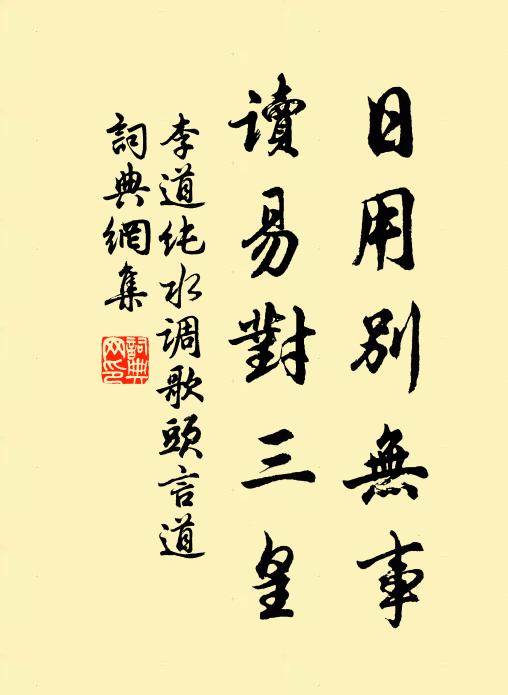 日用別無事
讀易對三皇
李道纯水调歌頭言道
詞典網集
詞典網印